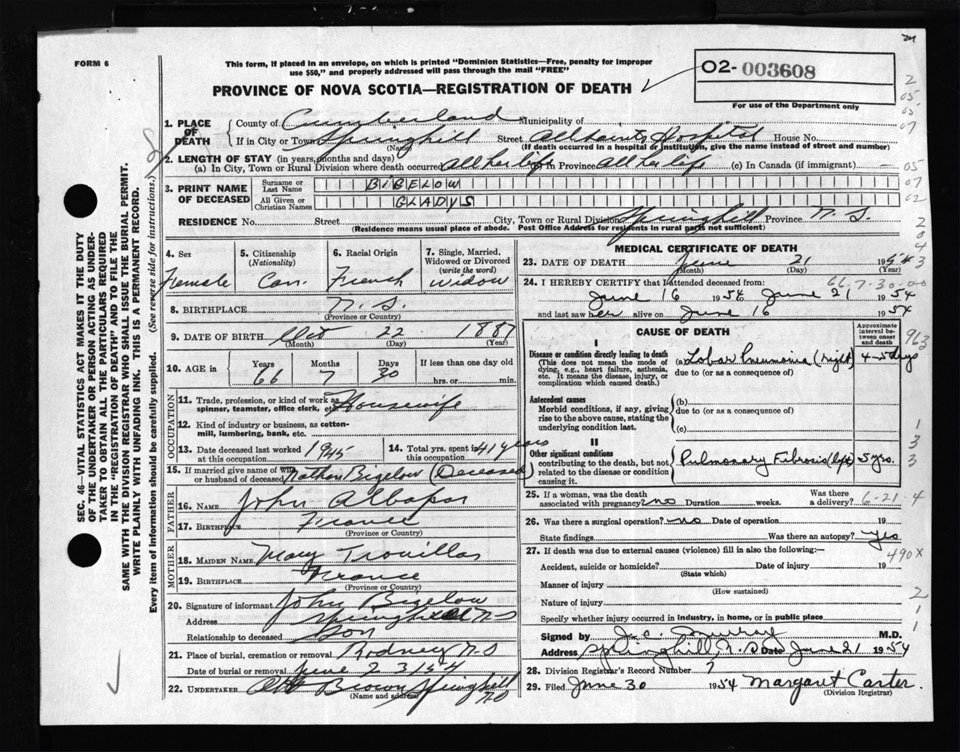 FORM 6
This form, if placed in an envelope, on which is printed "Dominion Statistics—Free, penalty for improper
use $50," and properly addressed will pass through the mail "FREE"
PROVINCE OF NOVA SCOTIA—REGISTRATION OF DEATH
02-003608
For use of the Department only
1. PLACE OF DEATH
County of Cumberland Municipality of
If in City or Town Springhill Street All Saints Hospital House No.
(Name) (If death occurred in a hospital or institution, give the name instead of street and number)
2. LENGTH OF STAY (in years, months and days)
(a) In City, Town or Rural Division where death occurred All her life In Province All her life (c) In Canada (if immigrant) —
3. PRINT NAME OF DECEASED
Surname or Last Name BIGELOW
All Given or Christian Names GLADYS
RESIDENCE No. Street City, Town or Rural Division Springhill Province N. S.
(Residence means usual place of abode. Post Office Address for residents in rural parts not sufficient)
4. Sex Female
5. Citizenship (Nationality) Can.
6. Racial Origin French
7. Single, Married, Widowed or Divorced (write the word) Widow
8. BIRTHPLACE N. S.
(Province or Country)
9. DATE OF BIRTH Oct 22 1887
(Month) (Day) (Year)
10. AGE in Years 66 Months 7 Days 30 If less than one day old hrs. or min.
OCCUPATION
11. Trade, profession, or kind of work as spinner, teamster, office clerk, etc. Housewife
12. Kind of industry or business, as cotton-mill, lumbering, bank, etc.
13. Date deceased last worked at this occupation 1945
14. Total yrs. spent in this occupation 41 years
15. If married give name of wife or husband of deceased Nathan Bigelow (Deceased)
FATHER
16. NAME John
17. BIRTHPLACE France
(Province or Country)
MOTHER
18. MAIDEN NAME Mary
19. BIRTHPLACE France
(Province or Country)
20. Signature of informant John Bigelow
Address Springhill N-S
Relationship to deceased Son
21. Place of burial, cremation or removal Rodney N-S
Date of burial or removal June 23 1954
22. UNDERTAKER Brown Springhill N.S
(Name and address)
MEDICAL CERTIFICATE OF DEATH
23. DATE OF DEATH June 21 1954
(Month) (Day)
24. I HEREBY CERTIFY that I attended deceased from: 66.7-30-00
June 16 1954 to June 21 1954
and last saw her alive on June 16 1954
CAUSE OF DEATH
Approximate interval between onset and death
I
Disease or condition directly leading to death
(This does not mean the mode of dying, e.g., heart failure, asthenia, etc. It means the disease, injury, or complication which caused death.)
(a) Lobar Pneumonia (right) 4-5 days
due to (or as a consequence of)
Antecedent causes
Morbid conditions, if any, giving rise to the above cause, stating the underlying condition last.
(b)
due to (or as a consequence of)
(c)
II
Other significant conditions
contributing to the death, but not related to the disease or condition causing it
Pulmonary Fibrosis (left) 5 yrs.
25. If a woman, was the death associated with pregnancy? no Duration weeks. Was there a delivery? 6-21-4
26. Was there a surgical operation? no Date of operation 19
State findings Was there an autopsy? Yes
27. If death was due to external causes (violence) fill in also the following:— 490X
Accident, suicide or homicide? Date of injury 19
(State which)
Manner of injury
(How sustained)
Nature of injury
Specify whether injury occurred in industry, in home, or in public place
Signed by M.D.
Address Springhill, N. S. Date June 21 1954
28. Division Registrar's Record Number 7
29. Filed June 30 1954 Margaret Carter.
(Division Registrar)
SEC. 46—VITAL STATISTICS ACT MAKES IT THE DUTY
OF THE UNDERTAKER OR PERSON ACTING AS UNDER-
TAKER TO OBTAIN ALL THE PARTICULARS REQUIRED
IN THE "REGISTRATION OF DEATH" AND TO FILE THE
SAME WITH THE DIVISION REGISTRAR WHO SHALL ISSUE THE BURIAL PERMIT.
WRITE PLAINLY WITH UNFADING INK. THIS IS A PERMANENT RECORD.
Every item of information should be carefully supplied. (See reverse side for instructions.)